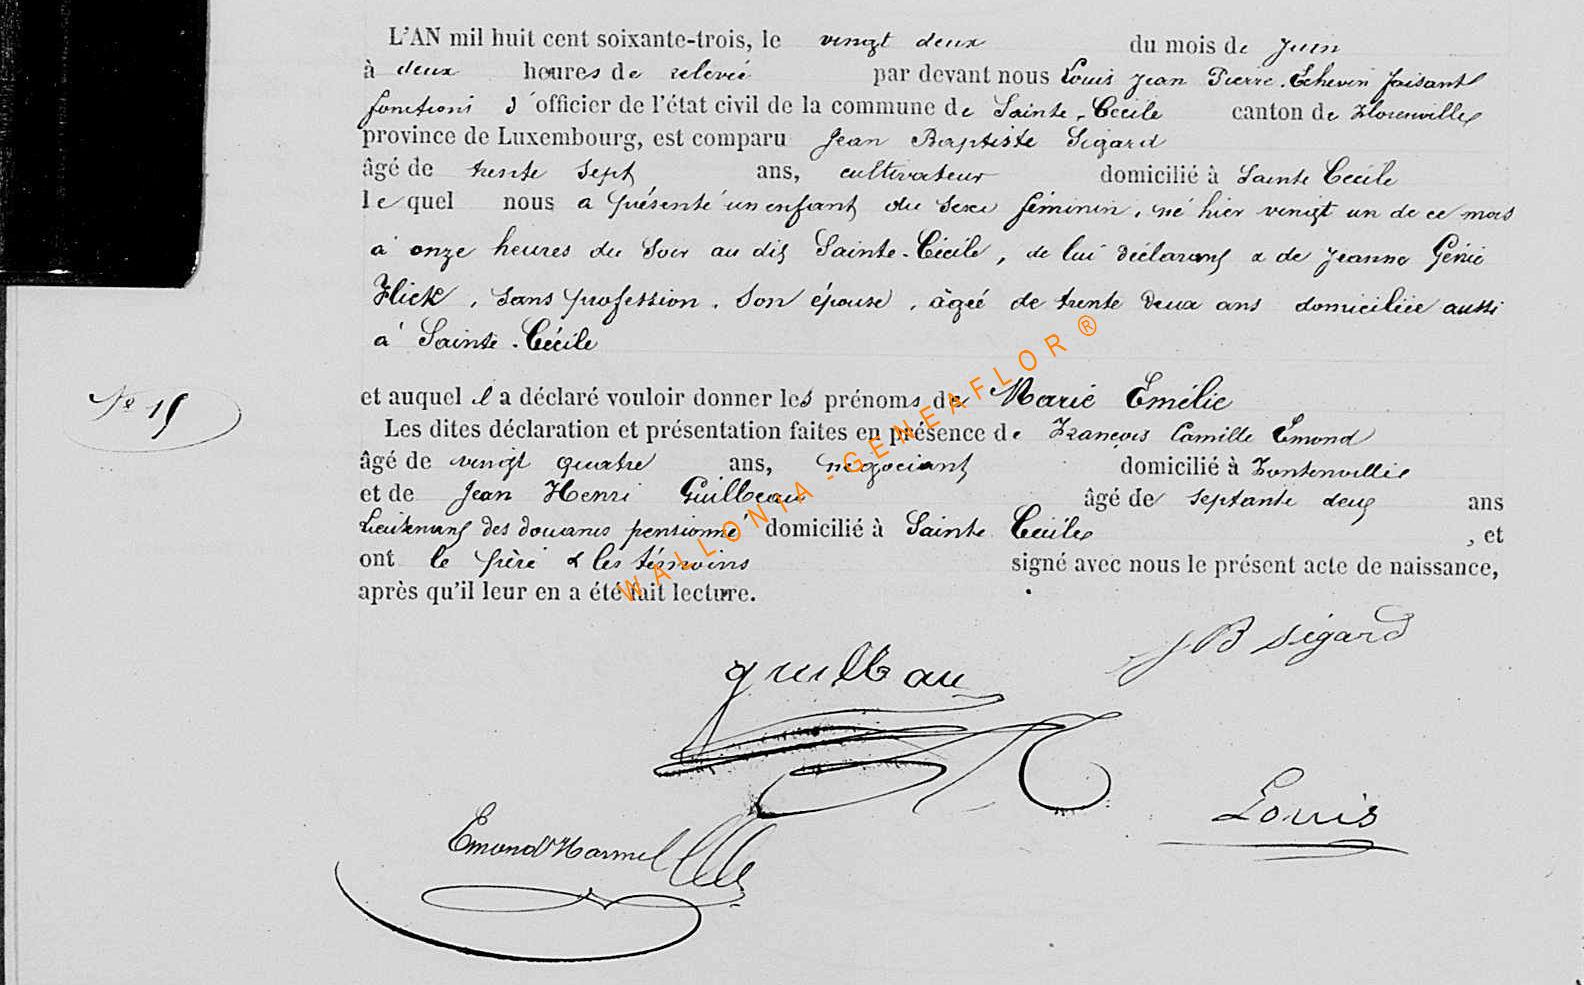 L'AN mil huit cent soixante-trois, le vingt deux du mois de juin
à deux heures de relevée par devant nous Louis Jean Pierre. Echevin faisant
fonctions d'officier de l'état civil de la commune de Sainte-Cécile canton de Florenville
province de Luxembourg, est comparu Jean Baptiste Sigard
âgé de trente sept ans, cultivateur domicilié à Sainte Cécile
lequel nous a présenté un enfant du sexe féminin, né hier vingt un de ce mois
à onze heures du soir au dit Sainte-Cécile, de lui déclarant & de Jeanne Génie
Flick, sans profession, son épouse, âgée de trente deux ans domiciliée aussi
à Sainte-Cécile
N° 15
et auquel il a déclaré vouloir donner les prénoms de Marie Emélie
Les dites déclaration et présentation faites en présence de François Camille Emond
âgé de vingt quatre ans, négociant domicilié à Fontenville
et de Jean Henri Guilbeau âgé de septante deux ans
Lieutenant des douanes pensionné domicilié à Sainte Cécile, et
ont le père & les témoins signé avec nous le présent acte de naissance,
après qu'il leur en a été fait lecture.
JB Sigard
guilbau
Louis
Emond Harmel
WALLONIA-GENEAFLOR®